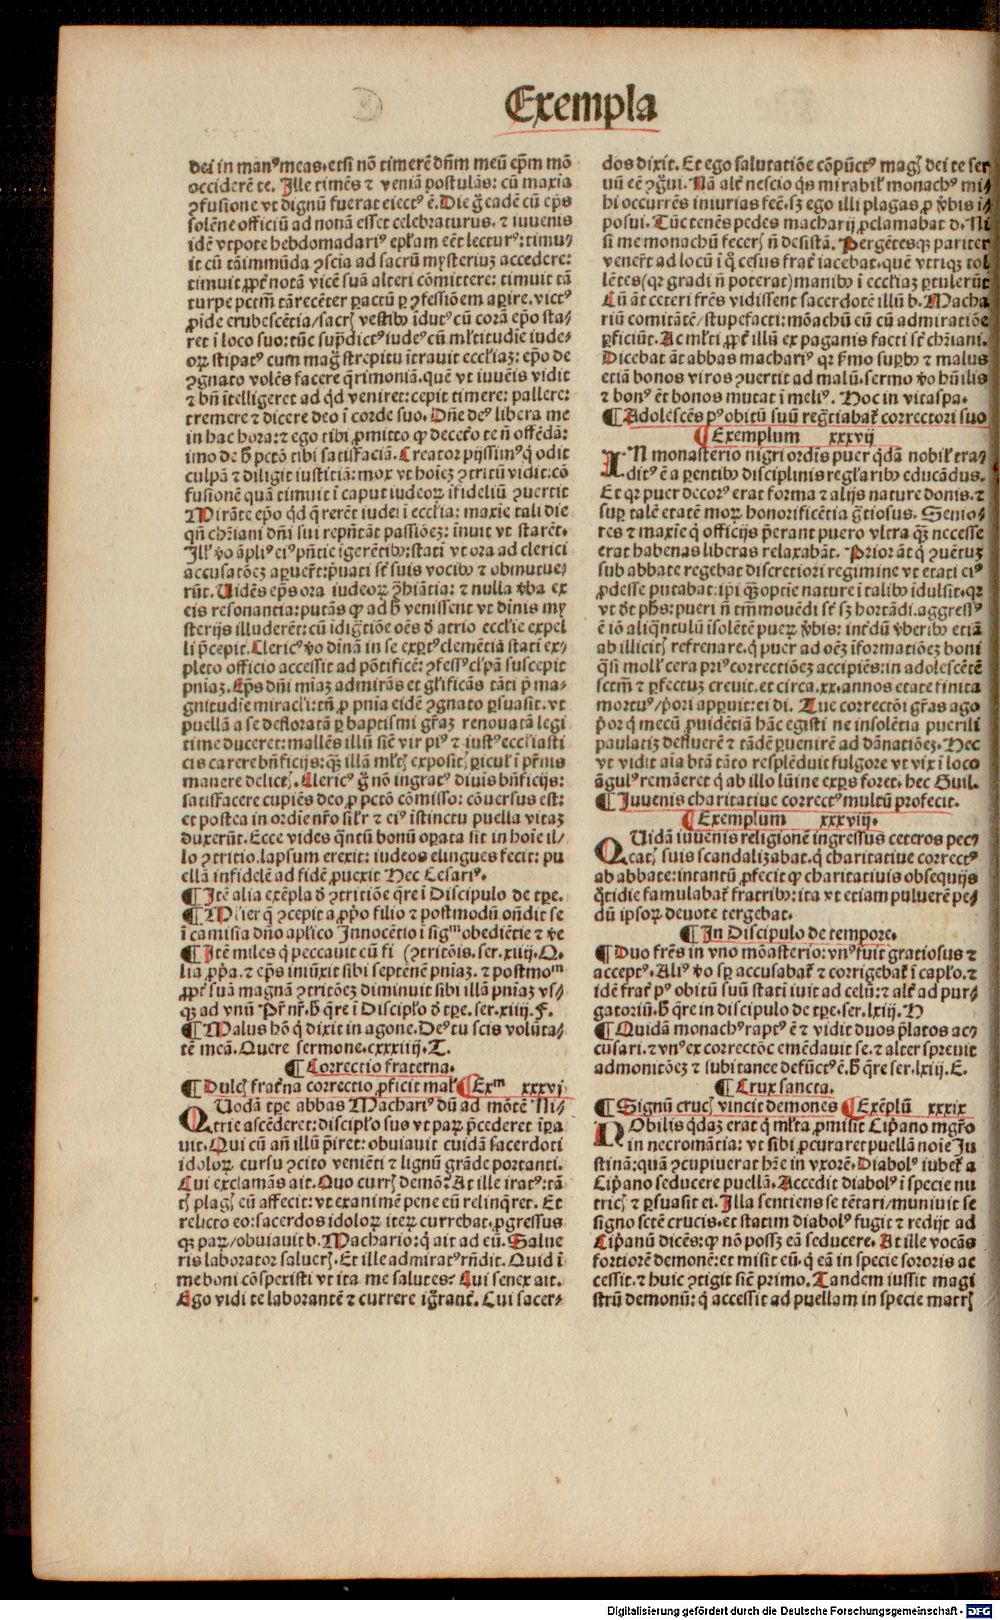 Exempla
dei in manꝰ meas. etsi nō timerē dn̄m meū ep̄m mō
occiderē te. Ille timēs ⁊ veniā postulās: cū maxīa
ꝯfusione vt dignū fuerat eiectꝰ ē. Die g̃ eadē cū ep̄s
solēne officiū ad nonā esset celebraturus. ⁊ iuuenis
idē vtpote hebdomadariꝰ epl̄am eēt lecturꝰ: timu⸗
it cū tā immūda ꝯscīa ad sacrū mysteriuꝫ accedere:
timuit ꝓpt̄ notā vicē suā alteri cōmittere: timuit tā
turpe pctm̄ tā recēter ꝑactū ꝑ ꝯfessiōem aꝑire. victꝰ
ꝓide erubescētia/ sacꝝ vestibꝰ īdutꝰ cū corā ep̄o sta⸗
ret ī loco suo: tūc sup̄dictꝰ iudeꝰ cū ml̄titudīe iude⸗
oꝝ stipatꝰ cum mag̃ strepitu ītrauit eccl̄iaꝫ: ep̄o de
ꝯgnato volēs facere q̄rimoniā. quē vt iuuēis vidit
⁊ bn̄ ītelligeret ad qd̄ veniret: cepit timere: pallere:
tremere ⁊ dicere deo ī corde suo. Dn̄e deꝰ libera me
in hac hora: ⁊ ego tibi ꝓmitto ꝙ deceť o te n̄ offēdā:
imo de ħ pctō tibi satisfaciā. Creator pijssimꝰ q̇ odit
culpā ⁊ diligit iusticiā: mox vt hoīeꝫ ꝯtritū vidit: cō
fusionē quā timuit ī caput iudeoꝝ īfideliū ꝯuertit
Mirāte ep̄o qd̄ q̄rerēt iudei ī eccl̄ia: maxīe tali die
qn̄ ch̄riani dn̄i sui repn̄tāt passiōeꝫ: īnuit vt starēt.
Ill̄ ꝟo āpliꝰ eiꝰ pn̄tie īgerētibꝰ: stati vt ora ad clerici
accusatōeꝫ aꝑueṙt: ꝑuati sť suis vocibꝰ ⁊ obmutue⸗
rūt. Uidēs ep̄s ora iudeoꝝ ꝯhiātia: ⁊ nulla ꝟba ex
eis resonantia: putās ꝙ ad ħ venissent vt dīnis my
sterijs illuderēt: cū idig̃tiōe oēs ď atrio eccl̄ie expel
li p̄cepit. Clericꝰ ꝟo dīnā in se exꝑtꝰ clemētiā stati ex⸗
pleto officio accessit ad pōtificē: ꝯfessꝰ cl̄pā suscepit
pn̄iaꝫ. Ep̄s dn̄i mīaꝫ admirās et gl̄ificās tāti p̄ ma⸗
gnitudīe miracl̄i: tn̄ ꝓ pnīa eidē ꝯgnato ꝑsuasit. vt
puellā a se defloratā ꝑ baptismi gr̄aꝫ renouatā legi
time duceret: mallēs illū siē vir piꝰ ⁊ iustꝰ eccl̄iasti
cis carere bn̄ficijs: qꝫ illā ml̄tꝭ expositꝭ ꝑicul̄ ī pr̄nis
manere delictꝭ. Clericꝰ g̃ nō ingratꝰ diuīs bn̄ficijs:
satisfacere cupiēs deo ꝓ pctō cōmisso: cōuersus est:
et postea in ordīe nr̄o sil̄r ⁊ eiꝰ īstinctu puella vitaꝫ
duxerūt. Ecce vides q̄ntū bonū oꝑata sit in hoīe il⸗
lo ꝯtritio. lapsum erexit: iudeos elingues fecit: pu
ellā infidelē ad fidē ꝓuexit Hec Cesariꝰ.
¶ Itē alia exēpla ď ꝯtritiōe q̄re ī Discipulo de tꝑe.
¶ Mīľier q̄ ꝯcepit a ꝓp̄o filio ⁊ postmodū on̄dit se
ī camisia dn̄o apl̄ico Innocētio ī sigᵐ obediētie ⁊ ꝟe
¶ Itē miles q̇ peccauit cū fi (ꝯtritōis. ser. xiiij. Q.
lia ꝓp̄a. ⁊ ep̄s iniūxit sibi septēnē pn̄iaꝫ. ⁊ postmoᵐ
ꝓpt̄ suā magnā ꝯtritōeꝫ diminuit sibi illā pn̄iaꝫ vs⸗
qꝫ ad vnū Pr̄ nr̄. ħ q̄re ī Discipl̄o ď tꝑe. ser. xiiij. F.
¶ Malus hō q̇ dixit in agone. Deꝰ tu scis volūta⸗
tē meā. Quere sermone. cxxxiiij. T.
¶ Correctio fraterna.
¶ Dulcꝭ fraťna correctio ꝓficit mal̄ ¶ Exᵐ xxxvi
QUodā tꝑe abbas Machariꝰ dū ad mōtē Ni⸗
trie ascēderet: discipl̄o suo vt paꝝ p̄cederet īꝑa
uit. Qui cū an̄ illū p̄iret: obuiauit cuidā sacerdoti
idoloꝝ cursu ꝯcito veniēti ⁊ lignū grāde portanti.
Cui exclamās ait. Quo currꝭ demō? At ille iratꝰ: tā
tꝭ plagꝭ eū affecit: vt exanimē pene eū relinq̄ret. Et
relicto eo: sacerdos idoloꝝ iteꝝ currebat. ꝓgressus
qꝫ paꝝ/ obuiauit b. Machario: q̇ ait ad eū. Salue
ris laborator salueꝭ. Et ille admiratꝰ rn̄dit. Quid ī
me boni cōspexisti vt ita me salutes? Cui senex ait.
Ego vidi te laborantē ⁊ currere ig̃rant̄. Cui sacer⸗
dos dixit. Et ego salutatiōe cōpūctꝰ magꝭ dei te ser
uū eē ꝯg̃ui. Nā alť nescio q̇s mirabil̄ monachꝰ mi⸗
hi occurrēs iniurias fec̄. sꝫ ego illi plagas ꝓ ꝟbis ī⸗
posui. Tūc tenēs pedes macharij ꝓclamabat d. Ni
si me monachū fecerꝭ n̄ desistā. Pergētesqꝫ pariter
veneṙt ad locū ī q̇ cesus frať iacebat. quē vtriqꝫ tol
lētes (qꝛ gradi n̄ poterat) manibꝰ ī eccl̄iaꝫ ꝑtulerūt
Cū āt ceteri fr̄es vidissent sacerdotē illū b. Macha
riū comitātē/ stupefacti: mōachū eū cū admiratiōe
ꝑficiūt. Ac ml̄ti ꝓpť illū ex paganis facti sť ch̄riani.
Dicebat āt abbas machariꝰ qꝛ ẜmo suꝑbꝰ ⁊ malus
etiā bonos viros ꝯuertit ad malū. sermo ꝟo hūilis
⁊ bonꝰ ēt bonos mutat ī meliꝰ. Hoc in vitaspa.
¶ Adolescēs pꝰ obitū suū reg̃tiabať correctori suo
¶ Exemplum xxxvij
IN monasterio nigri ordīs puer q̇dā nobil̄ tra⸗
ditꝰ ē a ꝑentibꝰ disciplinis regl̄aribꝰ educādus.
Et qꝛ puer decorꝰ erat forma ⁊ alijs nature donis. ⁊
suꝑ talē etatē moꝝ honorificētia g̃tiosus. Senio⸗
res ⁊ maxīe q̇ officijs p̄erant puero vltra qꝫ necesse
erat habenas liberas relaxabāt. Prior āt q̇ ꝯuētuꝫ
sub abbate regebat discretiori regimine vt etati eiꝰ
ꝓdesse putabat: ip̄i qꝫ optīe nature ī talibꝰ īdulsit. qꝛ
vt dt̄ ph̄s: pueri n̄ tm̄ mouēdi sť sꝫ hortādi. aggressꝰ
ē iō aliq̄ntulū īsolētē pueꝝ ꝟbis: intľdū ꝟberibꝰ etiā
ab illicitꝭ refrenare. q̇ puer ad oēꝫ īformatiōeꝫ boni
q̄si moll̄ cera priꝰ correctiōeꝫ accipiēs: in adolescētē
sctm̄ ⁊ ꝑfectuꝫ creuit. et circa. xx. annos etate finita
mortuꝰ/ p̄ori apꝑuit: ei di. Tue correctōi gr̄as ago
p̄or q̇ mecū ꝓuidētiā hāc egisti ne insolētia puerili
paulatiꝫ defluerē ⁊ tādē ꝑuenirē ad dānatiōeꝫ. Hec
vt vidit aīa btā tāto resplēduit fulgore vt vix ī loco
āgulꝰ remāeret q̇ ab illo lūine exꝑs foret. hec Guil.
¶ Iuuenis charitatiue correctꝰ multū profecit.
¶ Exemplum xxxviij.
QUidā iuuēnis religionē ingressus ceteros pec⸗
catꝭ suis scandalizabat. q̇ charitatiue correctꝰ
ab abbate: intantū ꝓfecit ꝙ charitatiuis obsequijs
q̄tidie famulabať fratribꝰ: ita vt etiam puluerē pe⸗
dū ipsoꝝ deuote tergebat.
¶ In Discipulo de tempore.
¶ Duo fr̄es in vno mōasterio: vnꝰ fuit gratiosus ⁊
acceptꝰ. Aliꝰ ꝟo sꝑ accusabať ⁊ corrigebať ī capl̄o. ⁊
idē frať pꝰ obitū suū stati iuit ad celū: ⁊ alť ad pur⸗
gatoriū. ħ q̄re in discipulo de tꝑe. ser. lxiij. H
¶ Quidā monachꝰ raptꝰ ē ⁊ vidit duos p̄latos ac⸗
cusari. ⁊ vnꝰ ex correctōe emēdauit se. ⁊ alter spreuit
admonitōeꝫ ⁊ subitanee defūctꝰ ē. ħ q̄re ser. lxiij. E.
¶ Crux sancta.
¶ Signū crucꝭ vincit demones ¶ Exēplū xxxix
NObilis q̇daꝫ erat q̇ ml̄ta ꝓmisit Cip̄ano mgr̄o
in necromātia: vt sibi ꝓcuraret puellā noīe Iu
stinā: quā ꝯcupiuerat hr̄e in vxorē. Diabolꝰ iubeť a
Cip̄ano seducere puellā. Accedit diabolꝰ ī specie nu
tricꝭ ⁊ ꝑsuasit ei. Illa sentiens se tētari/ muniuit se
signo sctē crucis. et statim diabolꝰ fugit ⁊ redijt ad
Cip̄anū dicēs: ꝙ nō possꝫ eā seducere. At ille vocās
fortiorē demonē: et misit eū. q̇ eā in specie sororis ac
cessit. ⁊ huic ꝯtigit siē primo. Tandem iussit magi
strū demonū: q̇ accessit ad puellam in specie matrꝭ
Digitalisierung gefördert durch die Deutsche Forschungsgemeinschaft - DFG